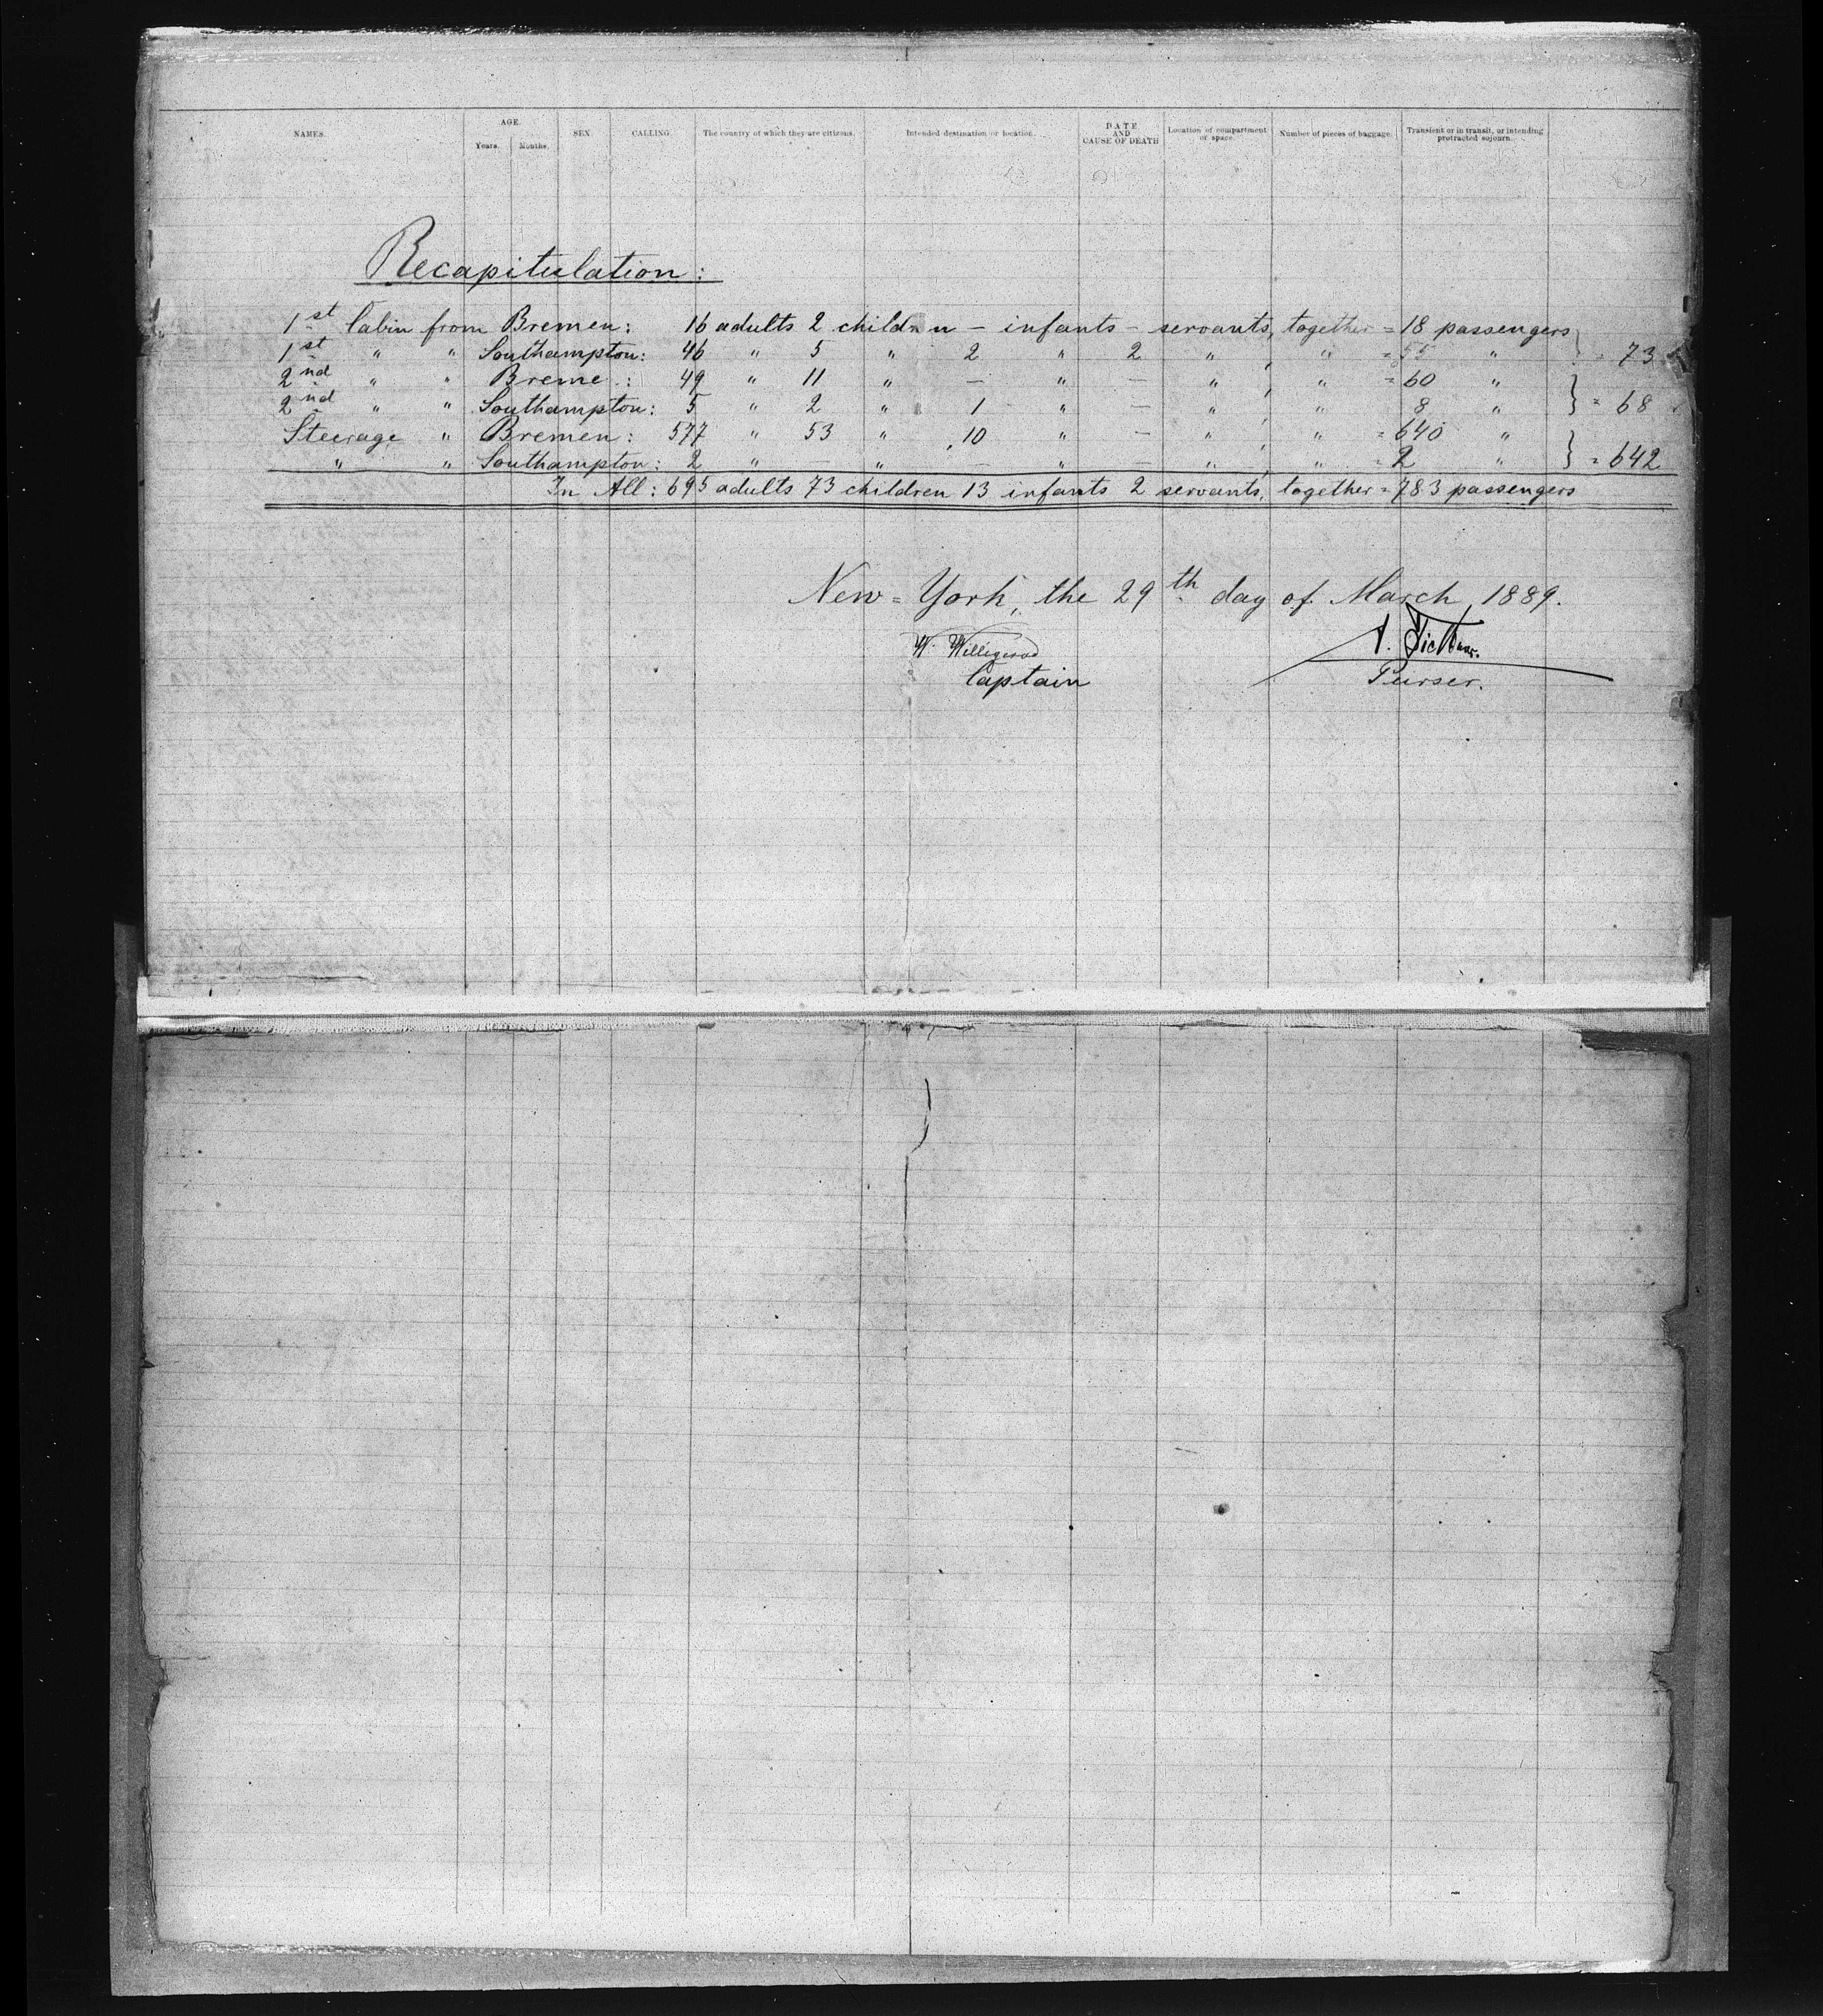 NAMES. AGE. SEX. CALLING. The country of which they are citizens. Intended destination or location. DATE AND CAUSE OF DEATH Location of compartment or space. Number of pieces of baggage. Transient or in transit, or intending protracted sojourn.
Years. Months.
Recapitulation:
1st Cabin from Bremen: 16 adults 2 children – infants – servants, together = 18 passengers
1st " " Southampton: 46 " 5 " 2 " 2 " , " = 55 " } = 73
2nd " " Breme : 49 " 11 " – " – " , " = 60 "
2nd " " Southampton: 5 " 2 " 1 " – " , " 8 " } = 68
Steerage " Bremen: 577 " 53 " 10 " – " , " = 640 "
" " Southampton: 2 " – " – " – " , " = 2 " } = 642
In All: 695 adults 73 children 13 infants 2 servants, together = 783 passengers
New = York, the 29th day of March 1889.
W. Willigerod
Captain
Purser.